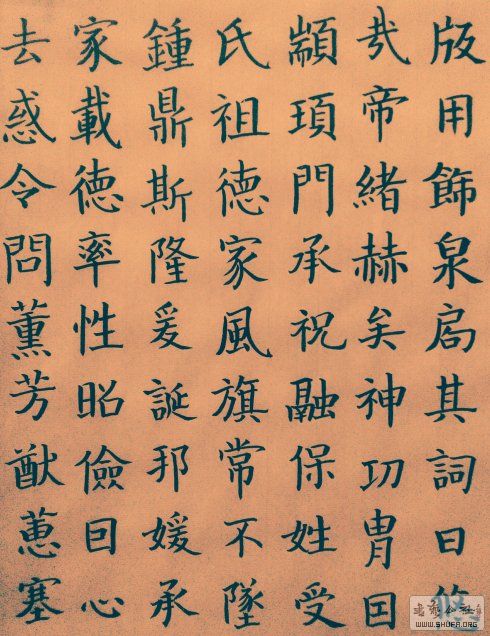 版用飾泉扃其詞曰
哉帝緒赫矣神功胄囙
顓頊門承祝融保姓受
氏祖德家風旗常不墜
鍾鼎斯隆爰誕邦媛承
家載德率性昭儉囙心
去惑令問薰芳猷蕙塞
WWW.SHUFA.ORG